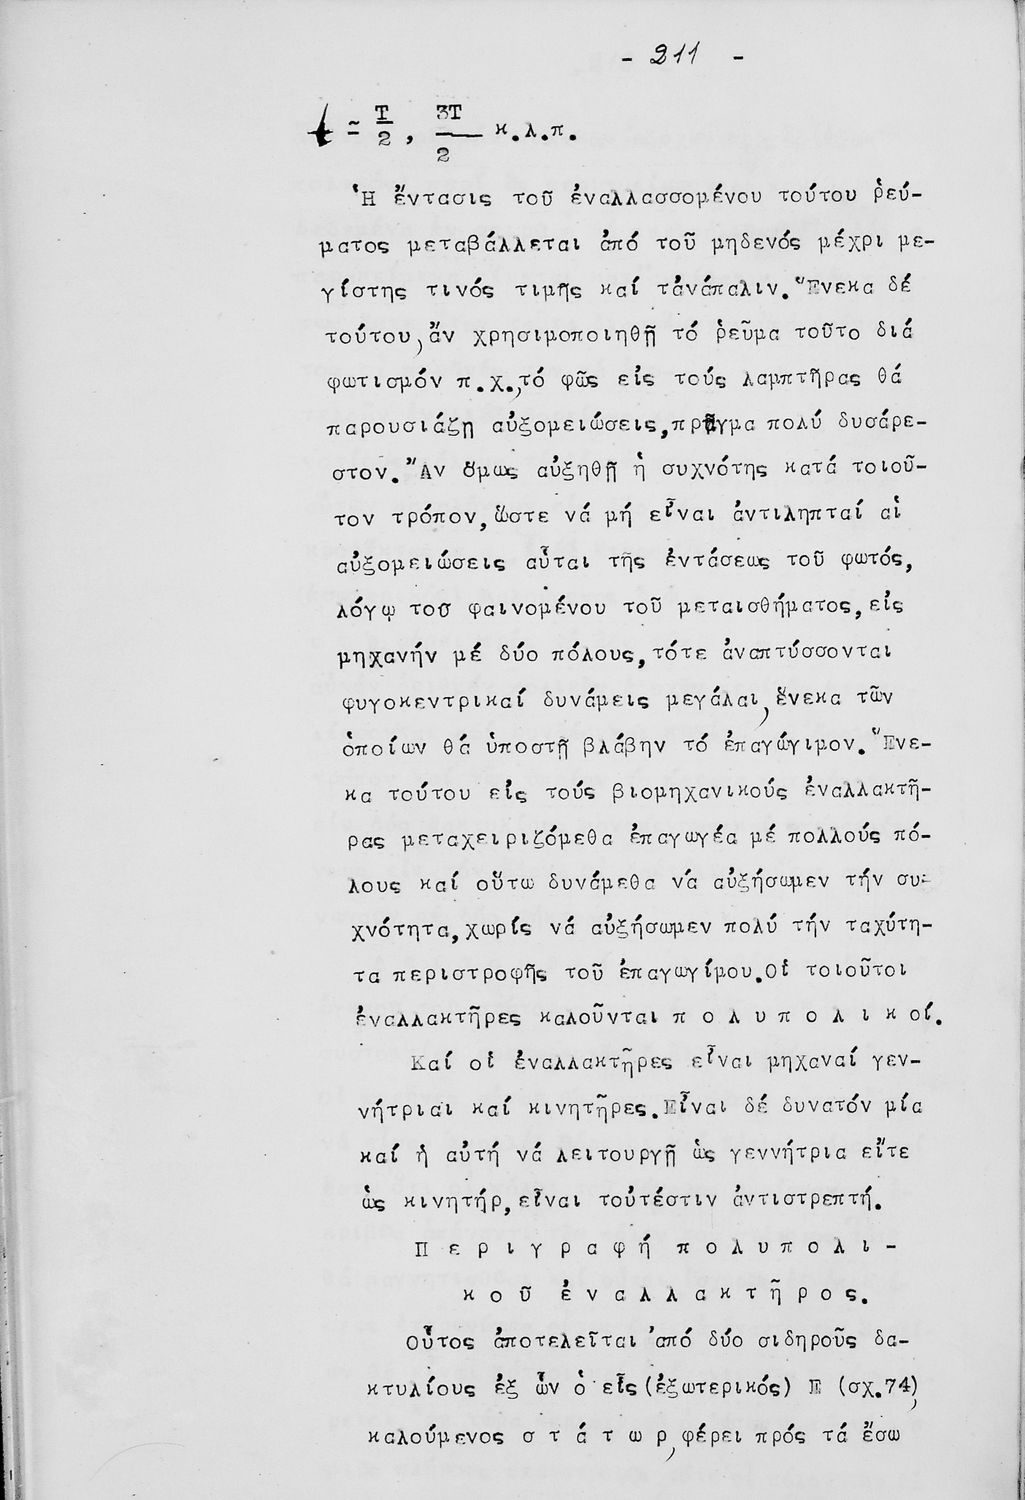 - 211 -
t = T/2 , 3T/2 κ.λ.π.
Ἡ ἔντασις τοῦ ἐναλλασσομένου τούτου ῥεύ-
ματος μεταβάλλεται ἀπό τοῦ μηδενός μέχρι με-
γίστης τινός τιμῆς καί τἀνάπαλιν. Ἕνεκα δέ
τούτου, ἄν χρησιμοποιηθῇ τό ῥεῦμα τοῦτο διά
φωτισμόν π.χ., τό φῶς εἰς τούς λαμπτῆρας θά
παρουσιάζῃ αὐξομειώσεις, πρᾶγμα πολύ δυσάρε-
στον. Ἄν ὅμως αὐξηθῇ ἡ συχνότης κατά τοιοῦ-
τον τρόπον, ὥστε νά μή εἶναι ἀντιληπταί αἱ
αὐξομειώσεις αὗται τῆς ἐντάσεως τοῦ φωτός,
λόγῳ τοσ φαινομένου τοῦ μεταισθήματος, εἰς
μηχανήν μέ δύο πόλους, τότε ἀναπτύσσονται
φυγοκεντρικαί δυνάμεις μεγάλαι, ἕνεκα τῶν
ὁποίων θά ὑποστῇ βλάβην τό ἐπαγώγιμον. Ἕνε-
κα τούτου εἰς τούς βιομηχανικούς ἐναλλακτῆ-
ρας μεταχειριζόμεθα ἐπαγωγέα μέ πολλούς πό-
λους καί οὕτω δυνάμεθα νά αὐξήσωμεν τήν συ-
χνότητα, χωρίς νά αὐξήσωμεν πολύ τήν ταχύτη-
τα περιστροφῆς τοῦ ἐπαγωγίμου. Οἱ τοιοῦτοι
ἐναλλακτῆρες καλοῦνται π ο λ υ π ο λ ι κ οί.
Καί οἱ ἐναλλακτῆρες εἶναι μηχαναί γεν-
νήτριαι καί κινητῆρες. Εἶναι δέ δυνατόν μία
καί ἡ αὐτή νά λειτουργῇ ὡς γεννήτρια εἴτε
ὡς κινητήρ, εἶναι τοὐτέστιν ἀντιστρεπτή.
Π ε ρ ι γ ρ α φ ή π ο λ υ π ο λ ι -
κ ο ῦ ἐ ν α λ λ α κ τ ῆ ρ ο ς.
Οὗτος ἀποτελεῖται ἀπό δύο σιδηροῦς δα-
κτυλίους ἐξ ὧν ὁ εἷς (ἐξωτερικός) Ε (σχ.74),
καλούμενος σ τ ά τ ω ρ, φέρει πρός τά ἔσω